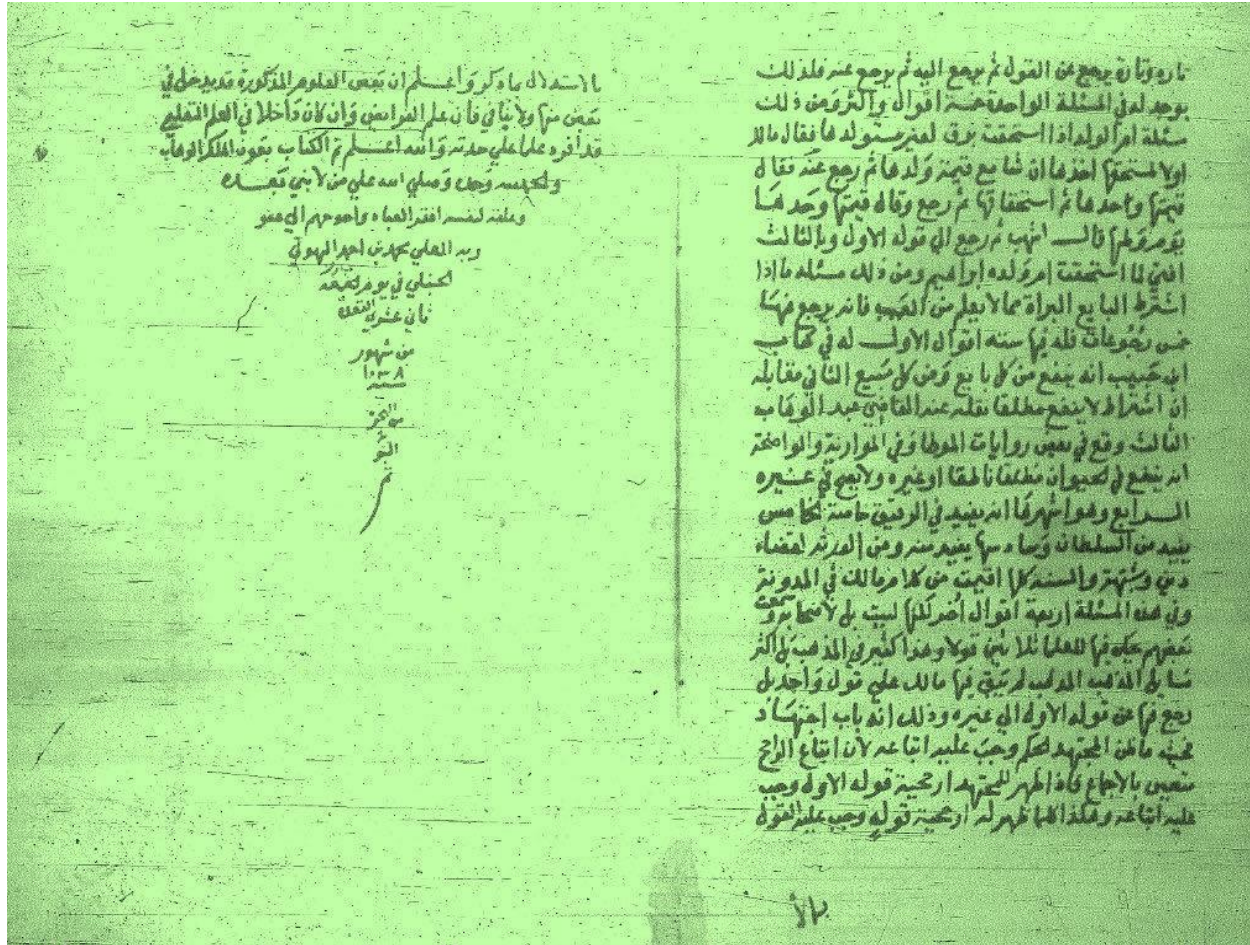 تارة وتارة يرجع عن القول ثم يرجع اليه ثم يرجع عنه فلذلك
يوجد له في المسئلة الواحدة خمسة اقوال واكثر ومن ذلك
مسئلة ام الولد اذا استحقت برق لغير مستولدها فقال مالك
اولا لمستحقها اخذها ان شا مع قيمة ولدها ثم رجع عنه فقال
قيمتها واحدها ثم استحقاقها ثم رجع وقال قيمتها وحدها
يوم وطئها قال اشهب ثم رجع الي قوله الاول وبالثالث
افتي لما استحقت ام ولده ابراهيم ومن ذلك مسئلة ما اذا
اشترط البايع البراة مما لا يعلم من العيب فانه يرجع فيها
خمس رجوعات فله فيها ستة اقوال الاول له في كتاب
ابن حبيب انه ينفع من كل بايع ومن كل مبيع الثاني مقابله
ان اشتراط لا ينفع مطلقا نقله عنه القاضي عبد الوهاب
الثالث وقع في بعض روايات الموطا وفي الموازية والواضحة
انه ينفع في الحيوان مطلقا ناطقا او غيره ولا يصح في غيره
الرابع وهو اشهرها انه يفيد في الرقيق خاصة الخامس
يفيد من السلطان وسادسها يفيد منه ومن الورثة لقضاء
دين وشبهة والستة كلها اقيمت من كلام مالك في المدونة
وفي هذه المسئلة اربعة اقوال اخر لكنها ليست بل لاصحابه وسمعت
بعضهم حكي فيها للعلما ثلاثين قولا وهذا كثير في المذهب بل اكثر
مسايل المذهب لم يبق فيها مالك علي قول واحد بل
رجع فيها عن قوله الاول الي غيره وذلك انه باب اجتهاد
ما ظن المجتهد الحكم وجب عليه اتباعه لان اتباع الراجح
متعين بالاجماع فاذا ظهر للمجتهد ارجحية قوله الاول وجب
عليه اتباعه وهكذا كلما ظهر له ارجحية قوله وجب عليه القول
بالاستدلال ما ذكر واعلم ان بعض العلوم المذكورة قد يدخل في
بعض منها ولا ينافي فان علم الفرائض وان كان داخلا في العلم
قد افرد علما علي حدته والله اعلم تم الكتاب بعون الملك الوهاب
والحمد لله وحده وصلي الله علي من لا نبي بعده
وعلقه لنفسه افقر العباد واحوجهم الي عفو
ربه العلي محمد بن احمد البهوتي
الحنبلي في يوم الجمعة
ثاني عشري القعدة
من شهور
سنة ١٠٣٨
من
تم